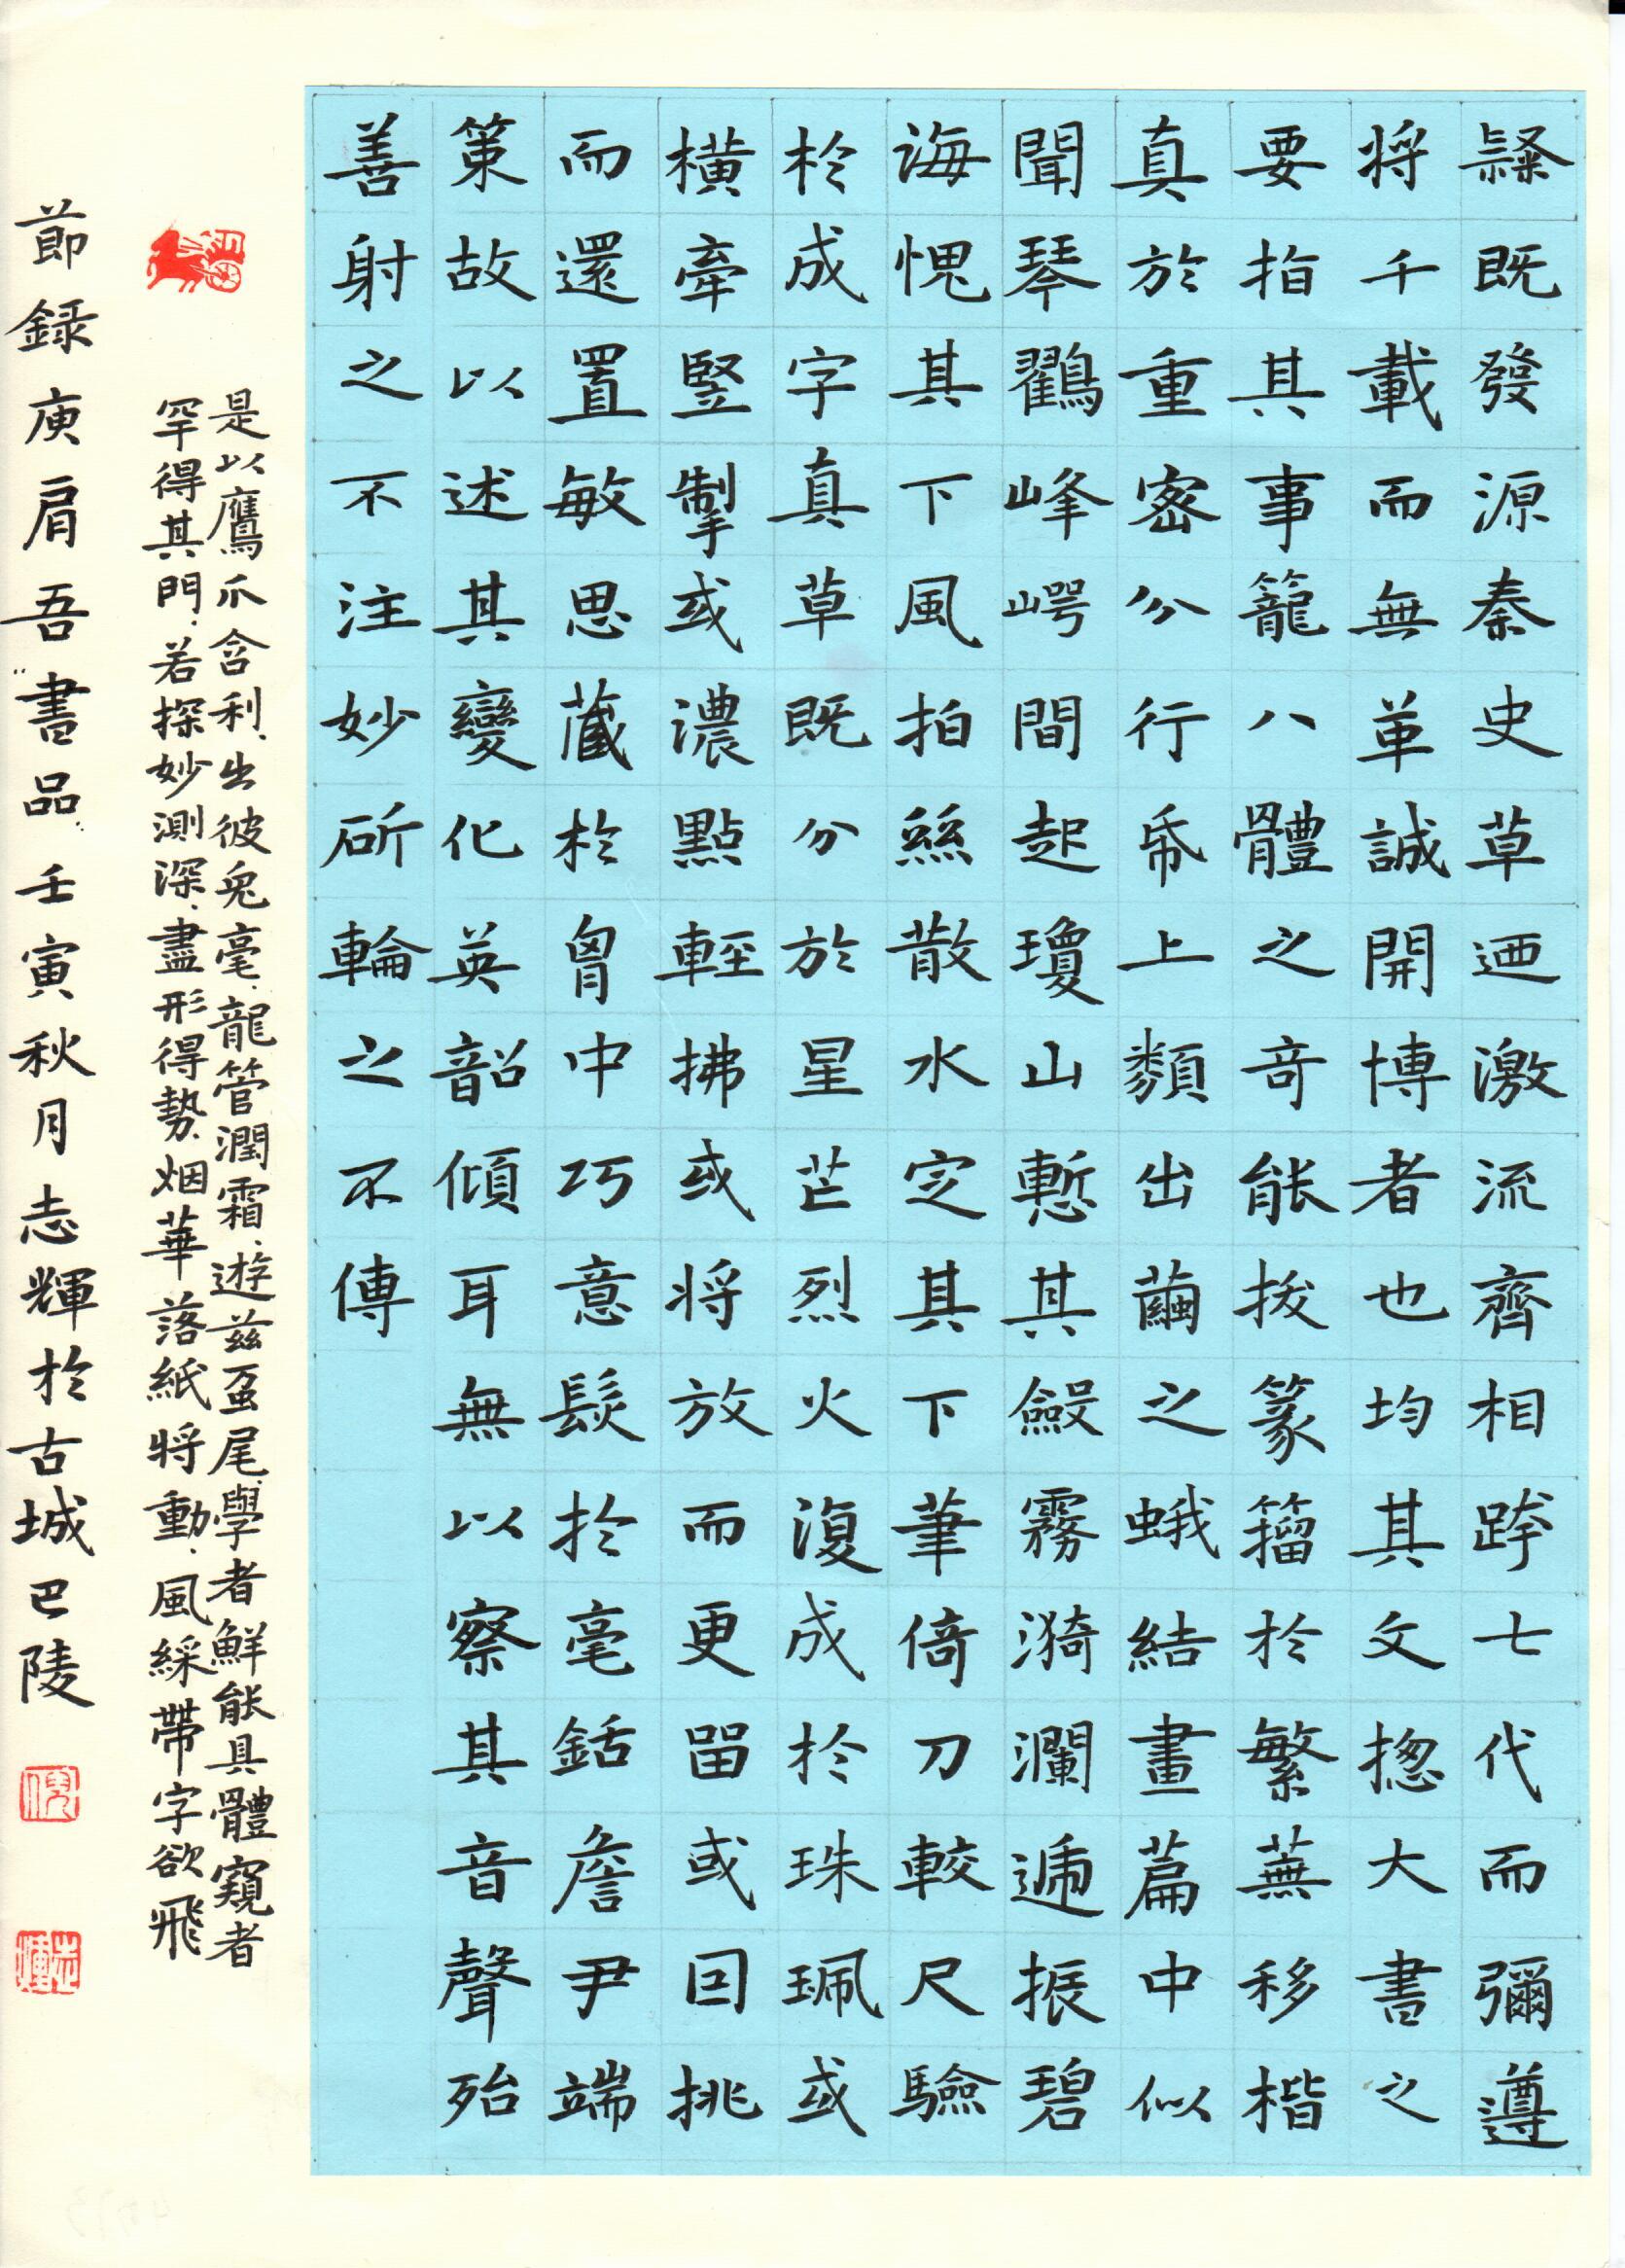 隸既發源秦史草迺激流齊相跨七代而彌遵
将千載而無革誠開博者也均其文揔大書之
要指其事籠八體之奇能拔篆籀於繁蕪移楷
真於重密分行㠯上類出繭之蛾結畫篇中似
聞琴鸛峰崿間起瓊山慙其斂霧漪瀾遞振碧
海愧其下風抽絲散水定其下筆倚刀較尺驗
於成字真草既分於星芒烈火復成於珠珮或
横牽竪掣或濃點輕拂或将放而更留或因挑
而還置敏思藏於胷中巧意髮於毫銛詹尹端
策故以述其變化英韶傾耳無以察其音聲殆
善射之不注妙斫輪之不傳
是以鷹爪含利出彼兔毫龍管潤霜遊兹虿尾學者鮮能具體窺者
罕得其門若探妙測深盡形得勢烟華落紙将動風綵帶字欲飛
節録庾肩吾書品壬寅秋月志輝於古城巴陵
志輝